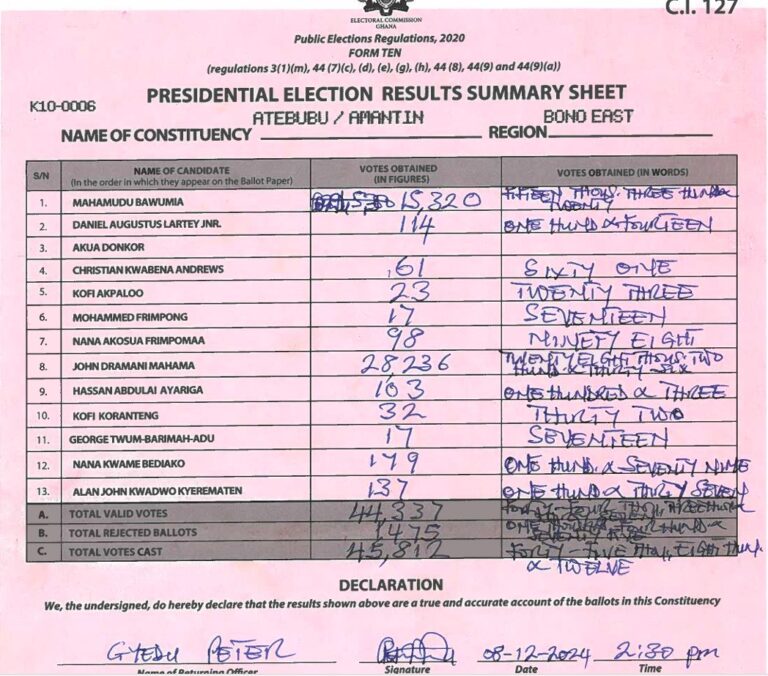 C.I. 127
ELECTORAL COMMISSION
GHANA
Public Elections Regulations, 2020
FORM TEN
(regulations 3(1)(m), 44 (7)(c), (d), (e), (g), (h), 44 (8), 44(9) and 44(9)(a))
K10-0006
PRESIDENTIAL ELECTION RESULTS SUMMARY SHEET
NAME OF CONSTITUENCY ATEBUBU / AMANTIN REGION BONO EAST
S/N NAME OF CANDIDATE (In the order in which they appear on the Ballot Paper) VOTES OBTAINED (IN FIGURES) VOTES OBTAINED (IN WORDS)
1. MAHAMUDU BAWUMIA 15,320 FIFTEEN THOUS. THREE HUND & TWENTY
2. DANIEL AUGUSTUS LARTEY JNR. 114 ONE HUND & FOURTEEN
3. AKUA DONKOR
4. CHRISTIAN KWABENA ANDREWS 61 SIXTY ONE
5. KOFI AKPALOO 23 TWENTY THREE
6. MOHAMMED FRIMPONG 17 SEVENTEEN
7. NANA AKOSUA FRIMPOMAA 98 NINETY EIGHT
8. JOHN DRAMANI MAHAMA 28,236 TWENTY EIGHT THOUS. TWO HUND & THIRTY SIX
9. HASSAN ABDULAI AYARIGA 103 ONE HUNDRED & THREE
10. KOFI KORANTENG 32 THIRTY TWO
11. GEORGE TWUM-BARIMAH-ADU 17 SEVENTEEN
12. NANA KWAME BEDIAKO 179 ONE HUND. & SEVENTY NINE
13. ALAN JOHN KWADWO KYEREMATEN 137 ONE HUND & THIRTY SEVEN
A. TOTAL VALID VOTES 44,337 FORTY-FOUR THOU, THREE HUND
B. TOTAL REJECTED BALLOTS 1475 ONE THOUSAND FOUR HUND & SEVENTY FIVE
C. TOTAL VOTES CAST 45,812 FORTY-FIVE THOU, EIGHT HUND. & TWELVE
DECLARATION
We, the undersigned, do hereby declare that the results shown above are a true and accurate account of the ballots in this Constituency
GYEDU PETER 08-12-2024 2:30 pm
Name of Returning Officer Signature Date Time